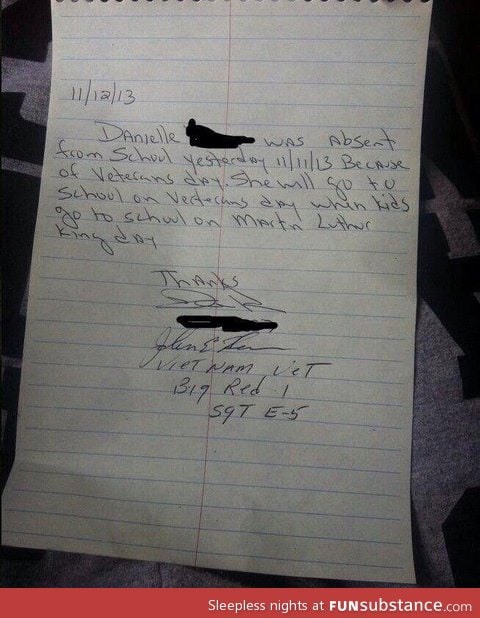 11/12/13
Danielle was Absent
from School yesterday 11/11/13 Because
of Veterans day. She will go to
School on Veterans day when kids
go to school on Martin Luther
King day
Thanks
VIET NAM VET
Big Red 1
SGT E-5
Sleepless nights at FUNsubstance.com